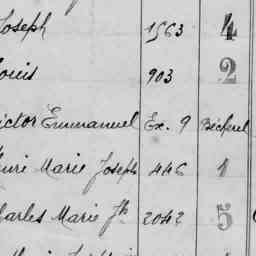 Joseph 1563 4
Louis 903 2
ictor Emmanuel Ex. 9 Bécherel
enri Marie Joseph 446 1
harles Marie Jh 2042 5